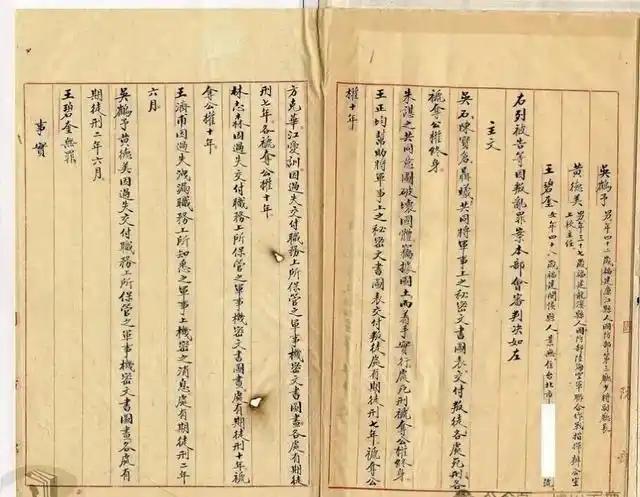 吳鶴予 男年四十二歲福建連江縣人國防部第三廳少將副廳長
黃德美 男年三十七歲福建龍溪縣人國防部陸海空軍聯合作戰指揮辦公室
上校主任
王碧奎 女年四十八歲福建閩侯縣人業無住台北市
號
右列被告等因叛亂罪案本部會審判決如左
主文
吳石陳寶倉聶曦共同將軍事上之秘密文書圖表交付叛徒各處死刑各
褫奪公權終身
朱諶之共同意圖破壞國體竊據國土而着手實行處死刑褫奪公權終身
王正均幫助將軍事上之秘密文書圖表交付叛徒處有期徒刑七年褫奪公
權十年
方克華江愛訓因過失交付職務上所保管之軍事機密文書圖畫各處有期徒
刑七年各褫奪公權十年
林志森因過失交付職務上所保管之軍事機密文書圖畫處有期徒刑十年褫
奪公權十年
王濟甫因過失洩漏職務上所知悉之軍事上機密之消息處有期徒刑二年
六月
吳鶴予黃德美因過失交付職務上所保管之軍事機密文書圖畫各處有
期徒刑二年六月
王碧奎無罪
事實